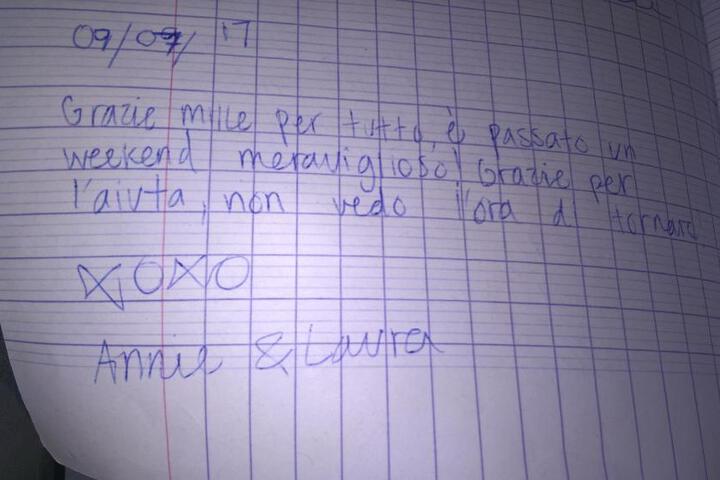 09/09/17
Grazie mille per tutto, è passato un
weekend meraviglioso! Grazie per
l'aiuta, non vedo l'ora di tornare.
XOXO
Annie & Laura